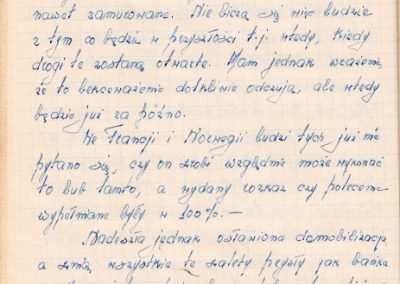 nawet zamurowane. Nie liczą się więc ludzie
z tym co będzie w przyszłości t.j. wtedy, kiedy
drogi te zostaną otwarte. Mam jednak wrażenie,
że to lekceważenie dotkliwie odczują, ale wtedy
będzie już za późno.
We Francji i Norwegii ludzi tych już nie
pytano się, czy on zrobi względnie może wykonać
to lub tamto, a wydany rozkaz czy polecenie
wypełniane były w 100%. —
Nadeszła jednak osławiona demobilizacja
a z nią wszystkie te zalety prysły jak bańka